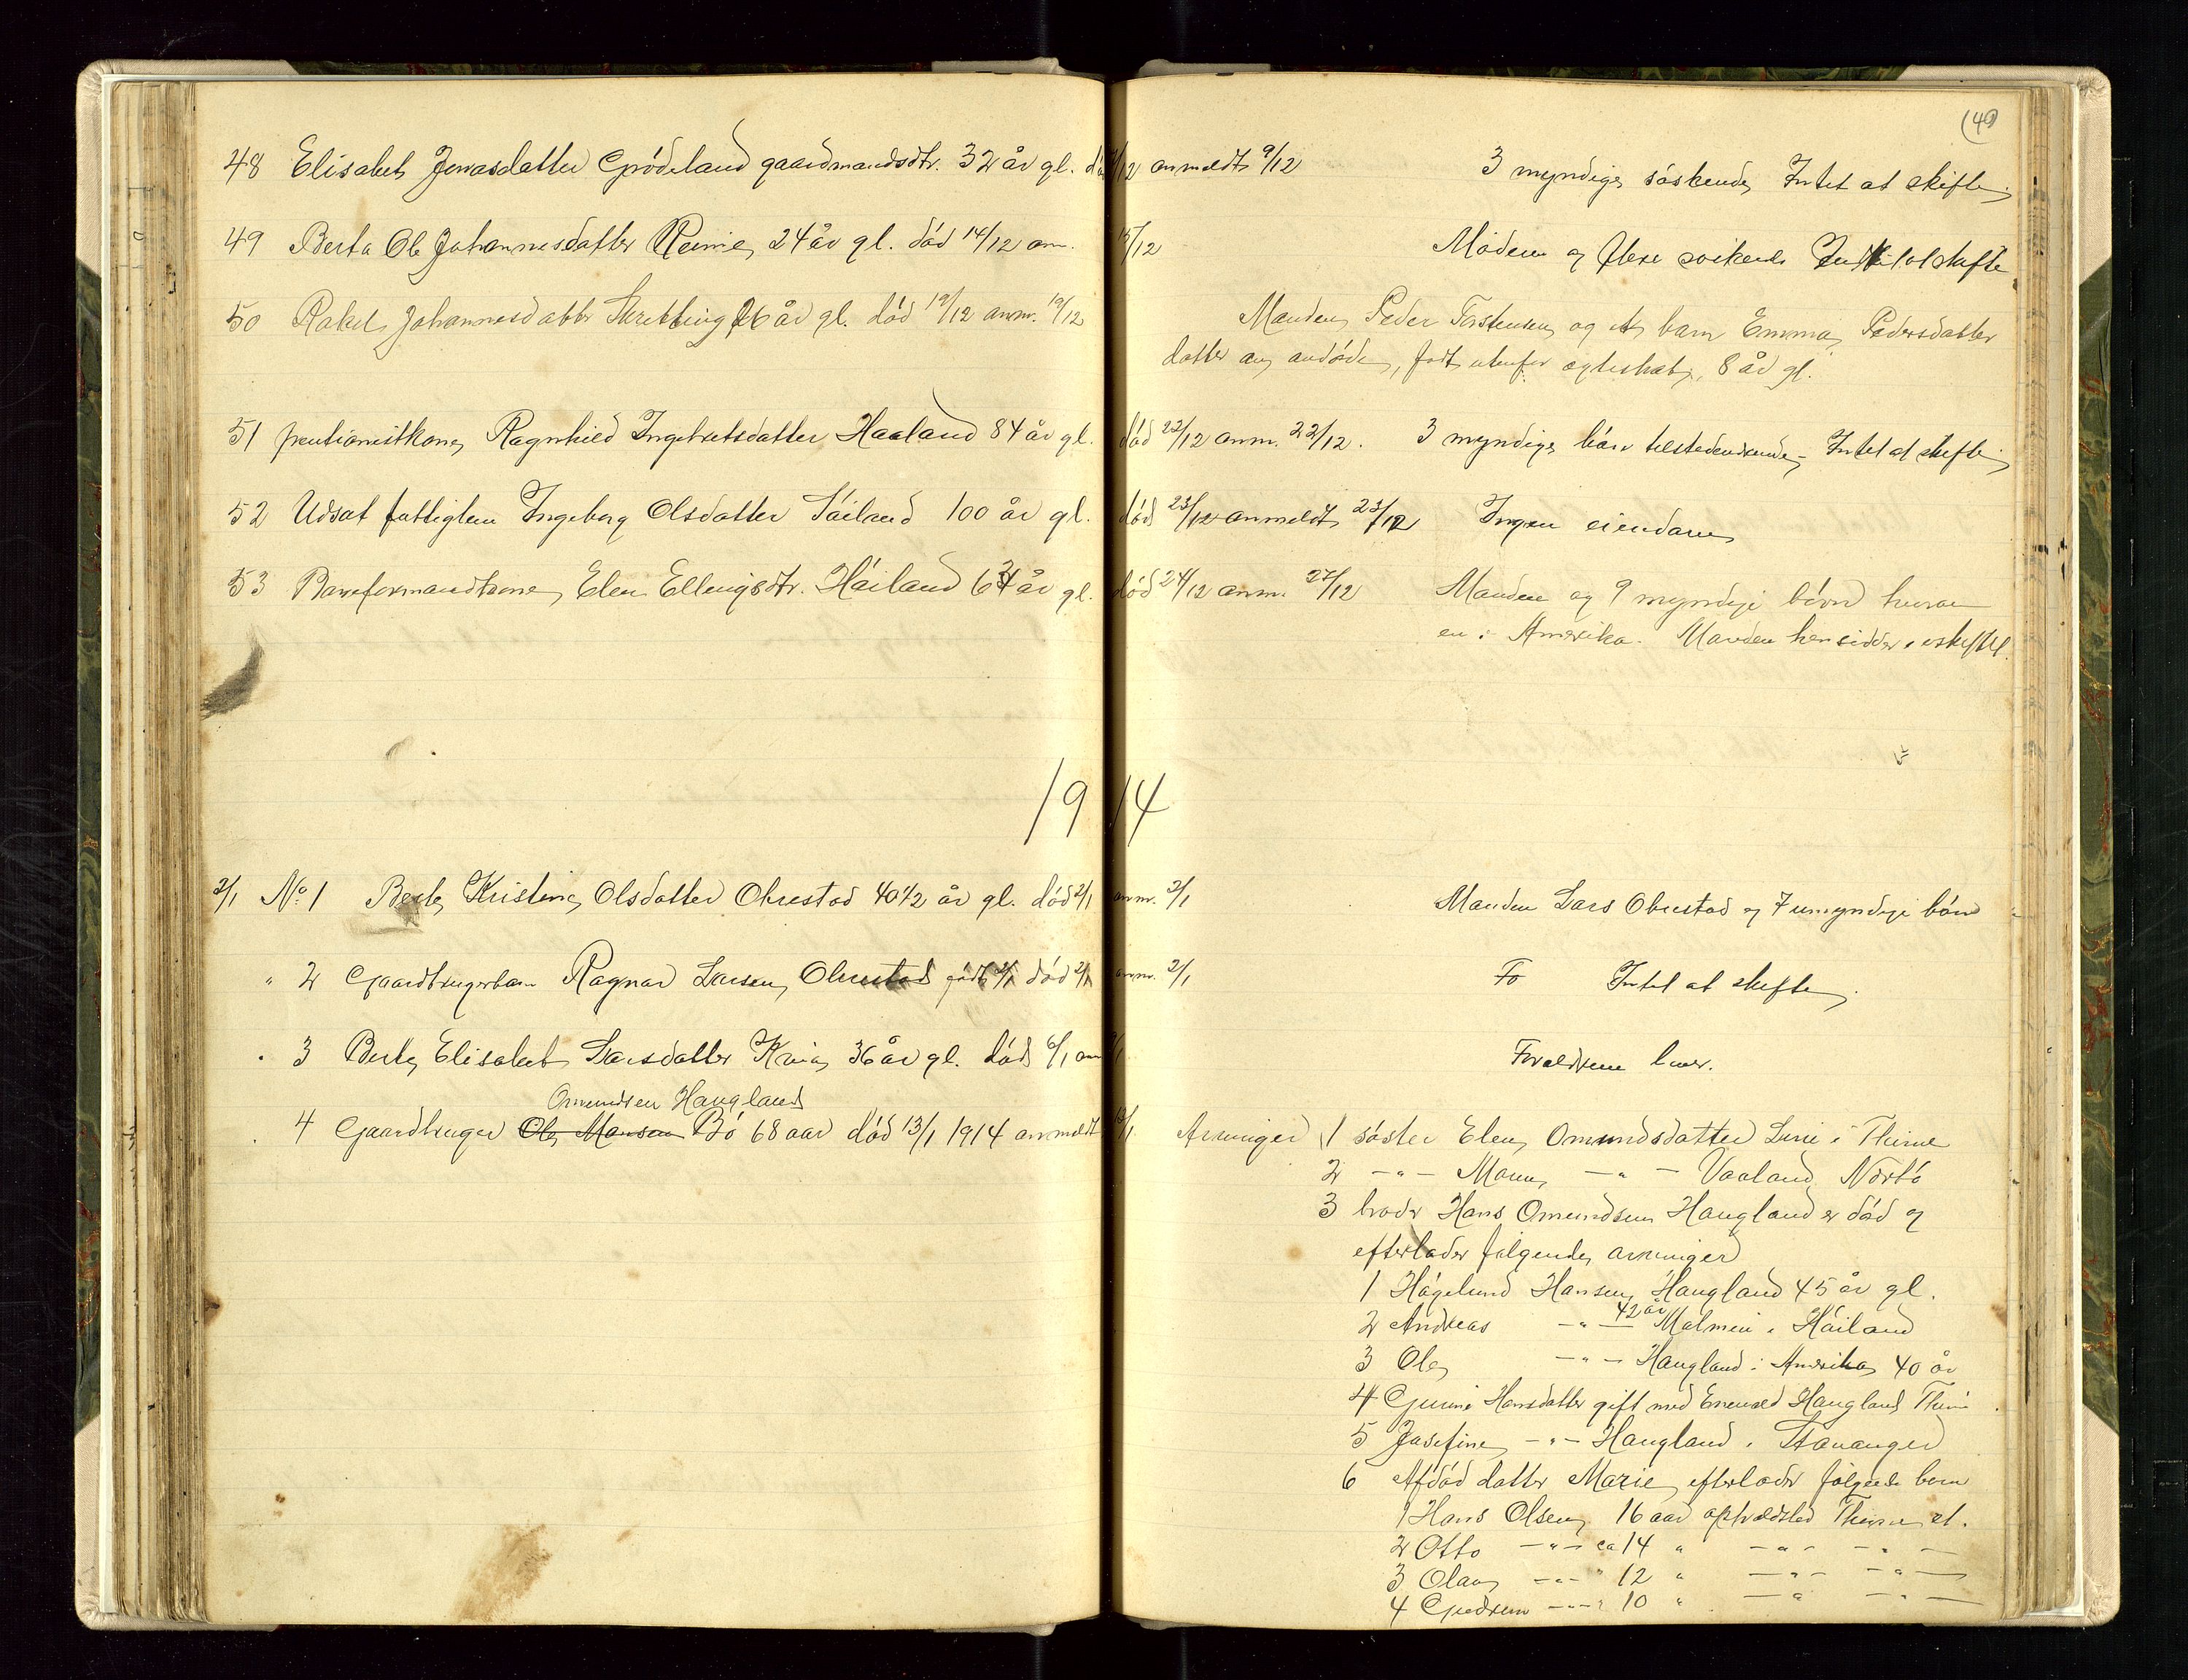 (49)
48 Elisabet Jonasdatter Grödeland gaardmandsdtr. 32 år gl. död /12 anmeldt 9/12 3 myndige söskende Intet at skifte
49 Berta Johannesdatter Reime, 24 år gl. död 14/12 anm. 15/12 Moderen og flere söskende Intet at skifte
50 Rakel Johannesdatter Skretting 26 år gl. död 19/12 anm. 19/12 Manden Peder Torstensen og et barn Emma Pedersdatter
datter av avdöde, født utenfor egteskab, 8 år gl.
51 pentionistkone Ragnhild Ingebretsdatter Haaland 84 år gl. död 22/12 anm. 22/12. 3 myndige börn tilstedeværende, Intet at skifte
52 Udsat fattiglem Ingeborg Olsdatter 100 år gl. död 23/12 anmeldt 23/12 Ingen eiendom
53 Baneformandkone Elen Ellingsdtr. Håiland 64 år gl. död 24/12 anm. 27/12 Manden og 9 myndige börn hvorav
en i Amerika. Manden hensidder i uskiftet
1914
2/1 No 1 Berte Kristine Olsdatter Obrestad 40 1/2 år gl. död 2/1 anm. 2/1 Manden Lars Obrestad og 7 umyndige börn
" 2 Gaardbrugerbarn Ragnar Larsen Obrestad født 2/1 död 2/1 anm. 2/1 Intet at skifte.
" 3 Berte Elisabet Larsdatter 36 år gl. död 6/1 anm Foreldrene lever.
Omundsen Haugland
" 4 Gaardbruger Ole Monsen Bö 68 aar död 13/1 1914 anmeldt 13/1 Arvinger 1 söster Elen Omundsdatter Line i Thime
2 -"- -"- Vaaland Nærbö
3 broder Hans Omundsen Haugland er död og
efterlader fölgende arvinger
1 Högelund Hansen Haugland 45 år gl.
2 Andreas -"- 42 år Malmin i Håiland
3 Ole -"- Haugland i Amerika 40 år
4 Gurine Hansdatter gift med Enevald Haugland Thime
5 Josefine -"- Haugland i Stavanger
6 Afdöd datter Marie efterlader fölgende barn
1 Hans Olsen 16 aar opholdsted Thime st.
2 Otto -"- ca 14 " -"- -"-
3 Olav -"- " 12 " -"- -"-
4 -"- " 10 " -"- -"-